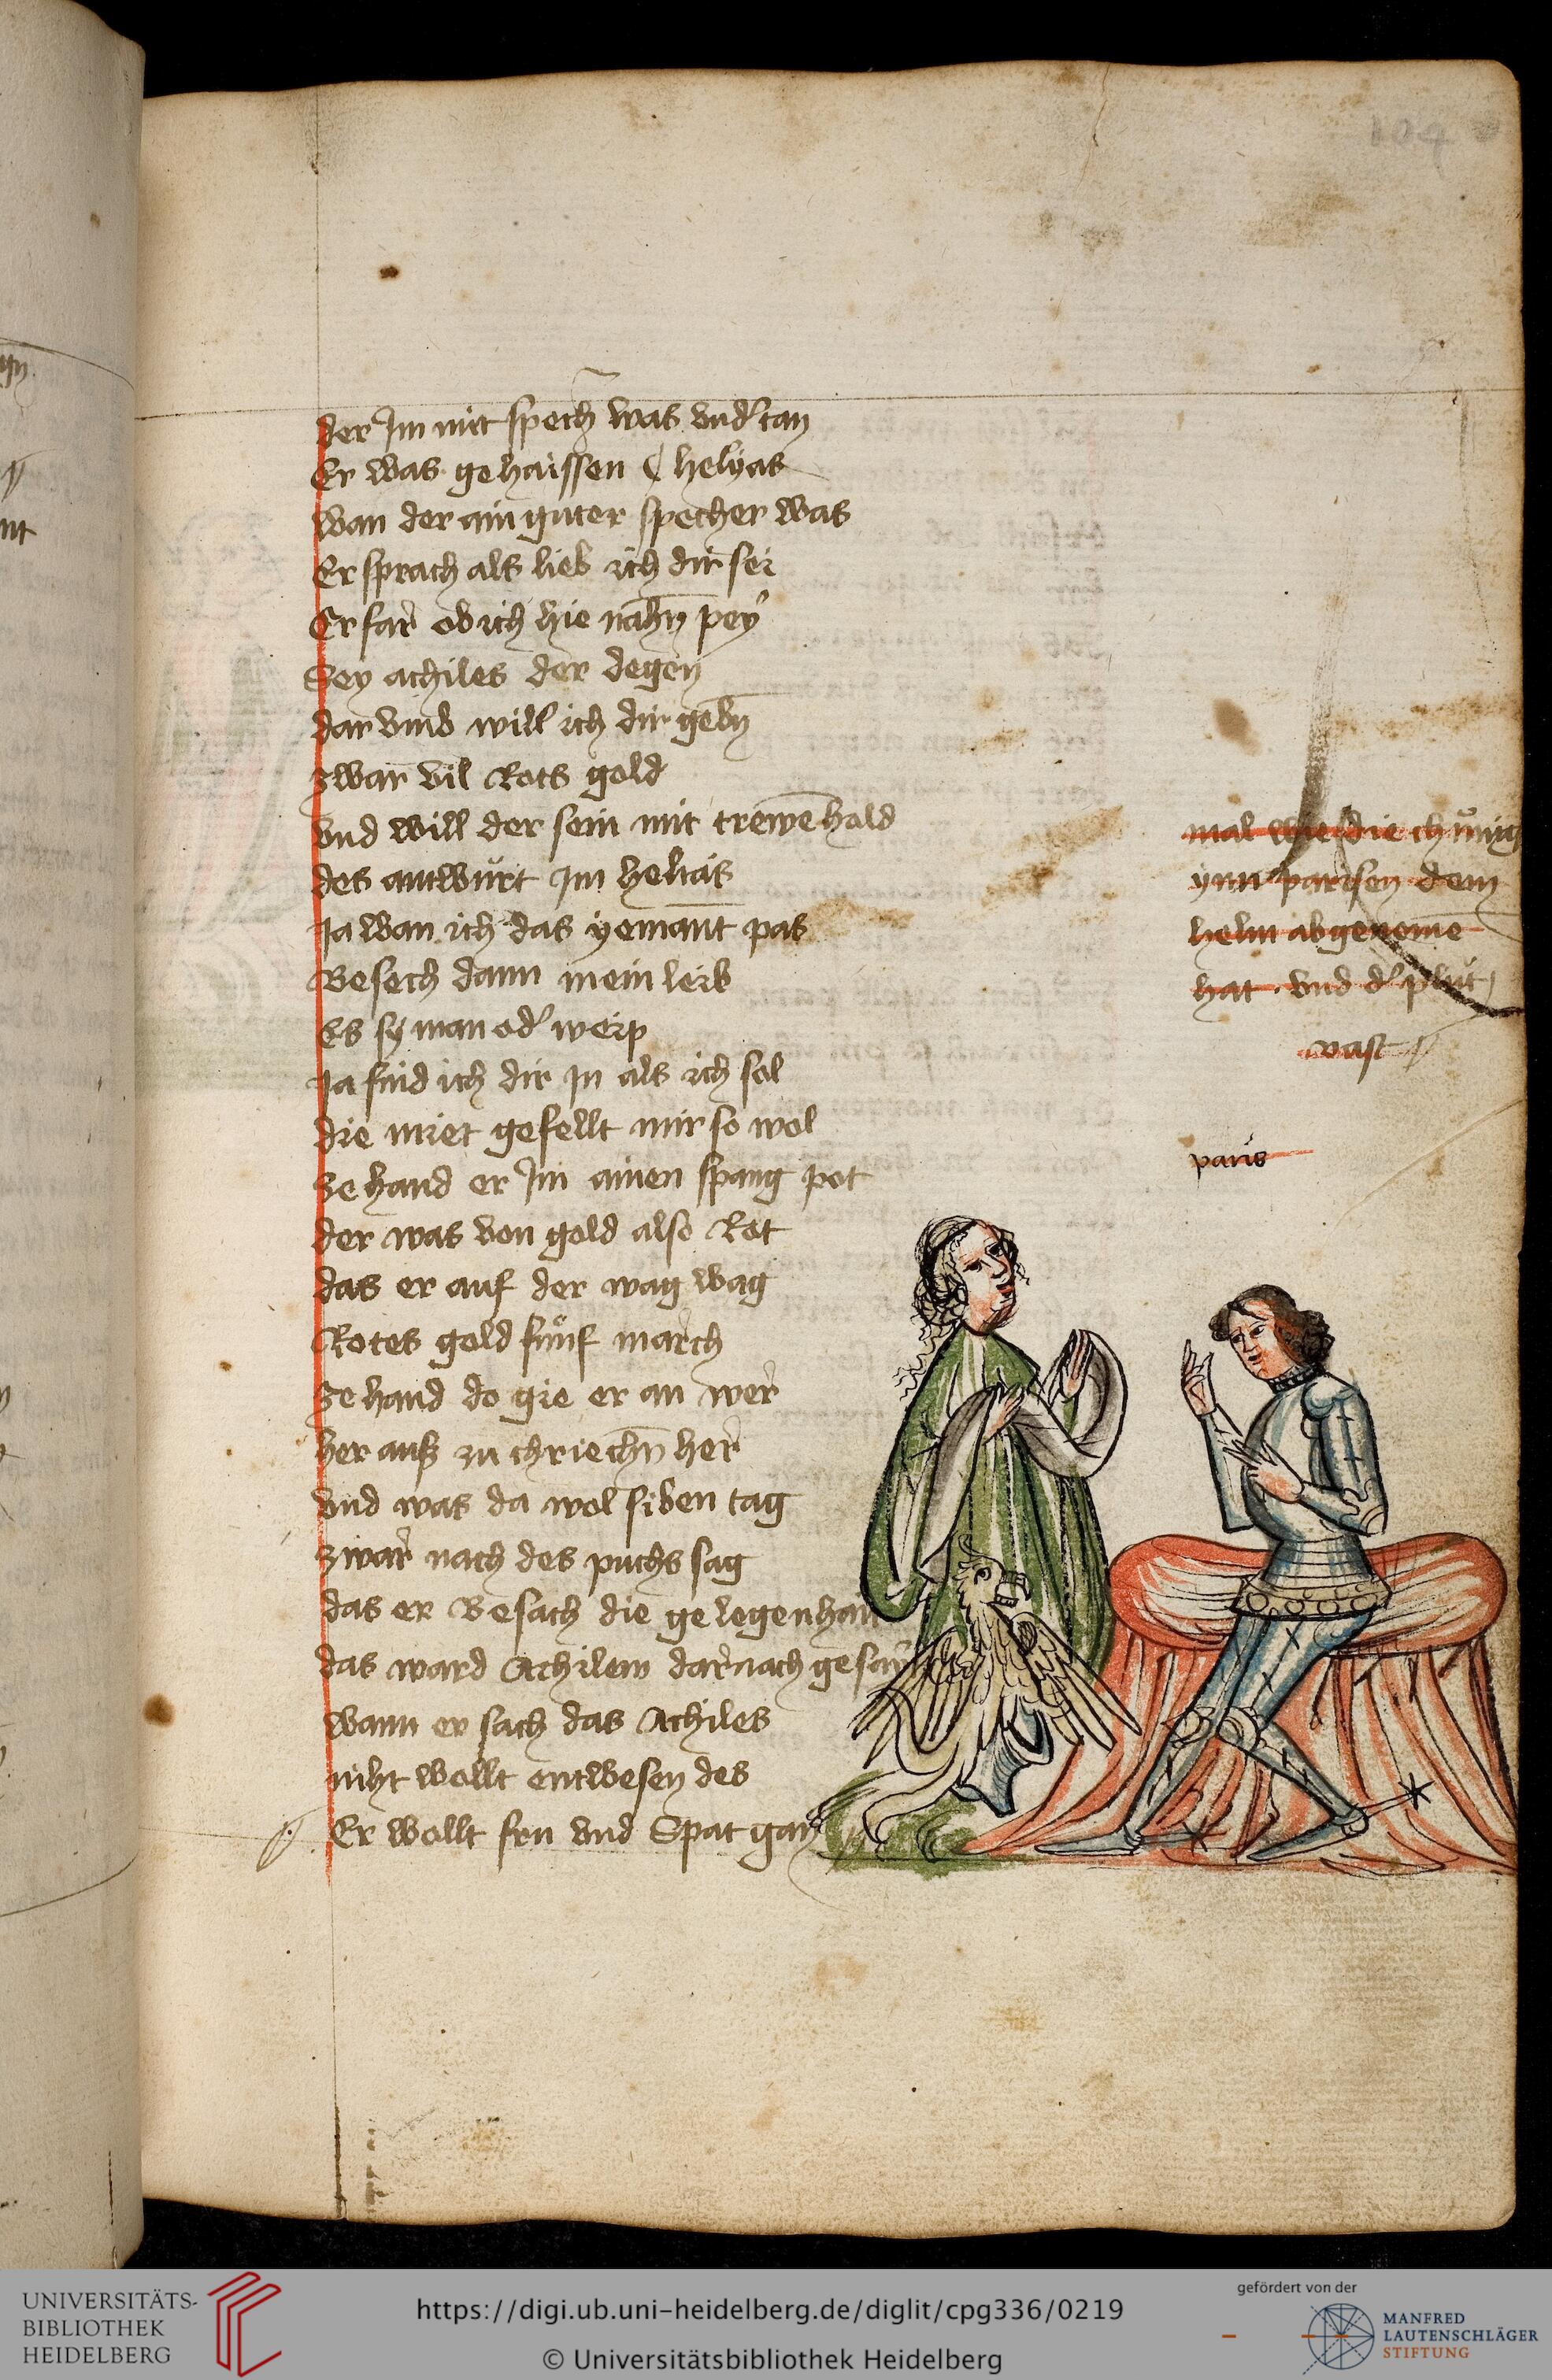 104
der Im mit spech was vnd' tan
Er was gehaissen helyas
wan der ain guter specher was
Er sprach als lieb ich dir sei
Erfar ob ich hie nahn pey
Sey achiles der degen
dar vmb will ich dir gebn
zwar vil Rots gold
vnd will der sein mit trewe hold
des antwurt Im helias
Ja wan ich das yemant pas
Besech dann mein leib
Es sy man od' weip
Ja find ich dir In als ich sol
die miet gefellt mir so wol
ze hand er Im ainen spang pot
der was von gold also Rot
das er auf der wag wag
Rotes gold funf march
ze hand do gie er an wer
her auß zu chriechn her
vnd was da wol siben tag
zwar nach des puchs sag
das er Besach die gelegenhait
das ward Achilem darnach
wann er sach das Achiles
niht wollt entwesen des
Er wollt fru vnd Spat gan
mal wie die chünig
ynn parisen dem
helm abgenome
hat . vnd d' plut
vast
paris
UNIVERSITÄTS-
BIBLIOTHEK
HEIDELBERG
https://digi.ub.uni-heidelberg.de/diglit/cpg336/0219
© Universitätsbibliothek Heidelberg
gefördert von der
MANFRED
LAUTENSCHLÄGER
STIFTUNG